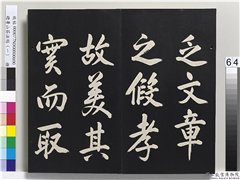 乏文章
之假孝
故美其
實而取
64